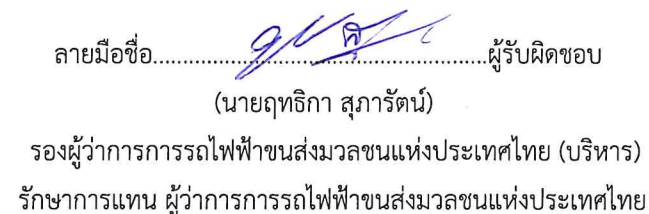 ลายมือชื่อ................................................ผู้รับผิดชอบ
(นายฤทธิกา สุภารัตน์)
รองผู้ว่าการการรถไฟฟ้าขนส่งมวลชนแห่งประเทศไทย (บริหาร)
รักษาการแทน ผู้ว่าการการรถไฟฟ้าขนส่งมวลชนแห่งประเทศไทย